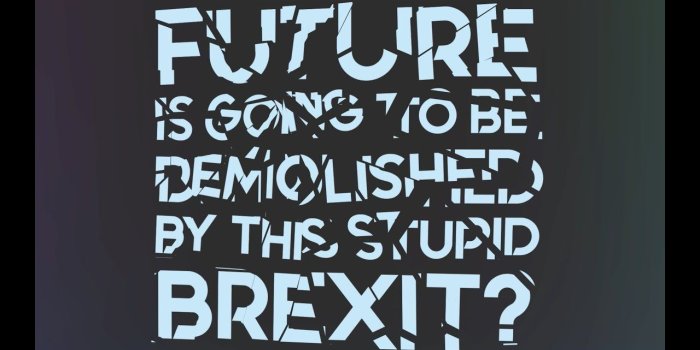 FUTURE
IS GOING TO BE
DEMOLISHED
BY THIS STUPID
BREXIT?